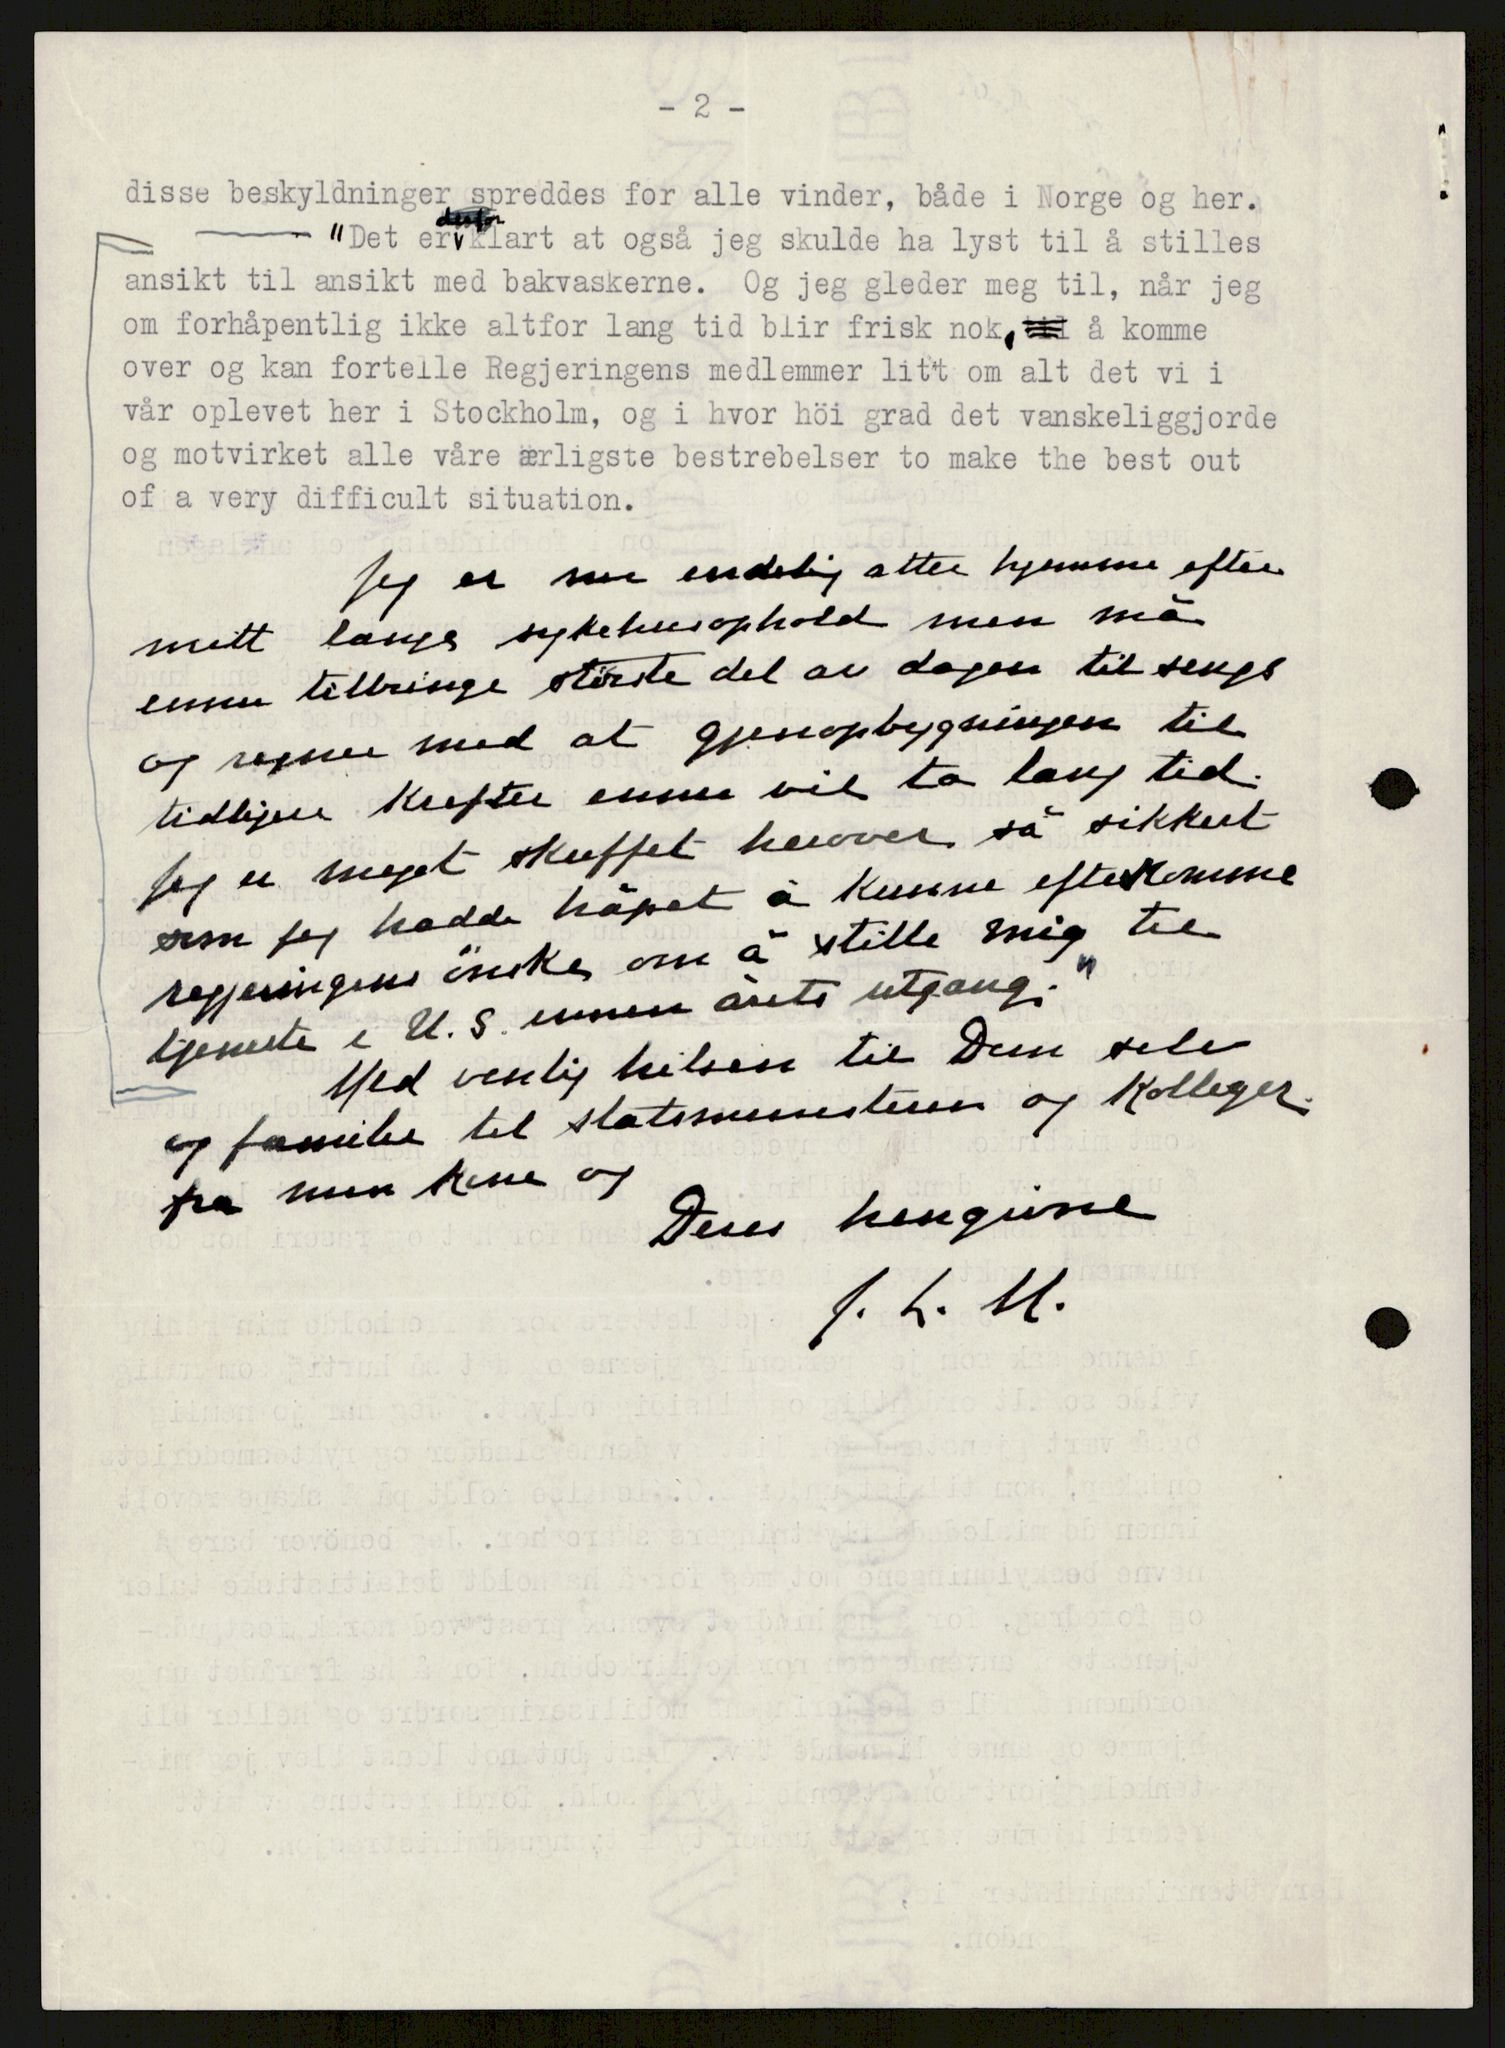 - 2 -
disse beskyldninger spreddes for alle vinder, både i Norge og her.
"Det er derfor klart at også jeg skulde ha lyst til å stilles
ansikt til ansikt med bakvaskerne. Og jeg gleder meg til, når jeg
om forhåpentlig ikke altfor lang tid blir frisk nok, til å komme
over og kan fortelle Regjeringens medlemmer litt om alt det vi i
vår oplevet her i Stockholm, og i hvor höi grad det vanskeliggjorde
og motvirket alle våre ærligste bestrebelser to make the best out
of a very difficult situation.
Jeg er nu endelig atter hjemme efter
mitt lange sykehusophold men må
ennu tilbringe største del av dagen til sengs
og regner med at gjenopbygningen til
tidligere krefter ennu vil ta lang tid.
Jeg er meget skuffet herover så sikkert
som jeg hadde håpet å kunne efterkomme
regjeringens önske om å stille mig til
tjeneste i U.S. innen årets utgang."
Med venlig hilsen til Dem selv
og familie til statsministeren og Kolleger.
fra min kone og
Deres hengivne
J. L. M.